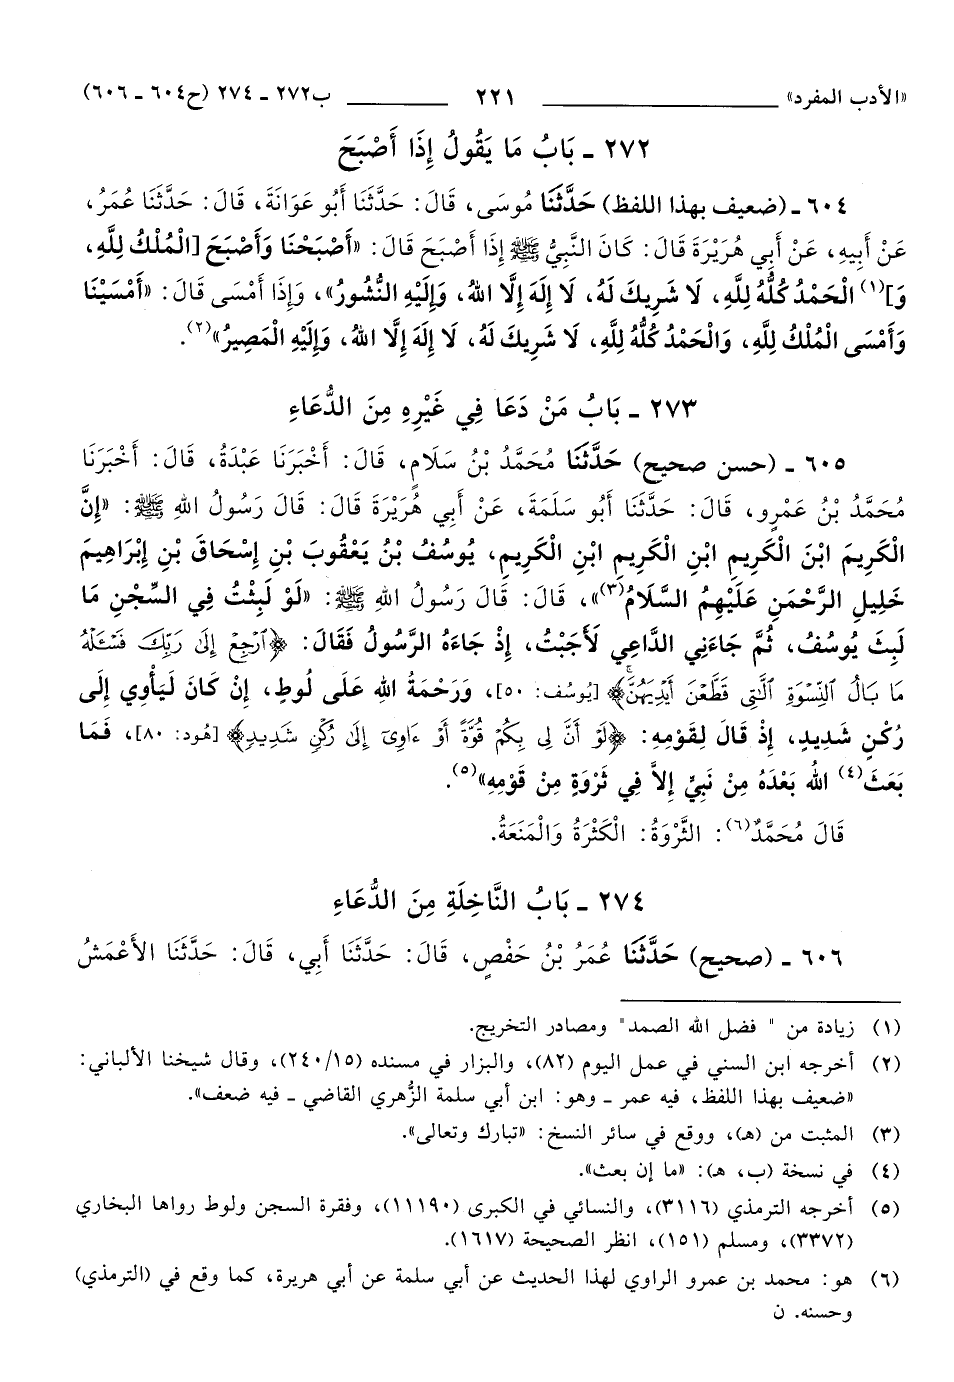 «الأدب المفرد» ٢٢١ ب٢٧٢ ـ ٢٧٤ (ح٦٠٤ ـ ٦٠٦)
٢٧٢ ـ بَابُ مَا يَقُولُ إِذَا أَصْبَحَ
٦٠٤ ـ (ضعيف بهذا اللفظ) حَدَّثَنَا مُوسَى، قَالَ: حَدَّثَنَا أَبُو عَوَانَةَ، قَالَ: حَدَّثَنَا عُمَرُ،
عَنْ أَبِيهِ، عَنْ أَبِي هُرَيْرَةَ قَالَ: كَانَ النَّبِيُّ ﷺ إِذَا أَصْبَحَ قَالَ: «أَصْبَحْنَا وَأَصْبَحَ [الْمُلْكُ لِلَّهِ،
وَ](١) الْحَمْدُ كُلُّهُ لِلَّهِ، لَا شَرِيكَ لَهُ، لَا إِلَهَ إِلَّا اللهُ، وَإِلَيْهِ النُّشُورُ»، وَإِذَا أَمْسَى قَالَ: «أَمْسَيْنَا
وَأَمْسَى الْمُلْكُ لِلَّهِ، وَالْحَمْدُ كُلُّهُ لِلَّهِ، لَا شَرِيكَ لَهُ، لَا إِلَهَ إِلَّا اللهُ، وَإِلَيْهِ الْمَصِيرُ»(٢).
٢٧٣ ـ بَابُ مَنْ دَعَا فِي غَيْرِهِ مِنَ الدُّعَاءِ
٦٠٥ ـ (حسن صحيح) حَدَّثَنَا مُحَمَّدُ بْنُ سَلَامٍ، قَالَ: أَخْبَرَنَا عَبْدَةُ، قَالَ: أَخْبَرَنَا
مُحَمَّدُ بْنُ عَمْرٍو، قَالَ: حَدَّثَنَا أَبُو سَلَمَةَ، عَنْ أَبِي هُرَيْرَةَ قَالَ: قَالَ رَسُولُ اللهِ ﷺ: «إِنَّ
الْكَرِيمَ ابْنَ الْكَرِيمِ ابْنِ الْكَرِيمِ ابْنِ الْكَرِيمِ، يُوسُفُ بْنُ يَعْقُوبَ بْنِ إِسْحَاقَ بْنِ إِبْرَاهِيمَ
خَلِيلِ الرَّحْمَنِ عَلَيْهِمُ السَّلَامُ(٣)»، قَالَ: قَالَ رَسُولُ اللهِ ﷺ: «لَوْ لَبِثْتُ فِي السِّجْنِ مَا
لَبِثَ يُوسُفُ، ثُمَّ جَاءَنِي الدَّاعِي لَأَجَبْتُ، إِذْ جَاءَهُ الرَّسُولُ فَقَالَ: ﴿ٱرْجِعْ إِلَىٰ رَبِّكَ فَسْـَٔلْهُ
مَا بَالُ ٱلنِّسْوَةِ ٱلَّٰتِى قَطَّعْنَ أَيْدِيَهُنَّ﴾ [يُوسُف: ٥٠]، وَرَحْمَةُ اللهِ عَلَى لُوطٍ، إِنْ كَانَ لَيَأْوِي إِلَى
رُكْنٍ شَدِيدٍ، إِذْ قَالَ لِقَوْمِهِ: ﴿لَوْ أَنَّ لِى بِكُمْ قُوَّةً أَوْ ءَاوِىٓ إِلَىٰ رُكْنٍ شَدِيدٍ﴾ [هُود: ٨٠]، فَمَا
بَعَثَ(٤) اللهُ بَعْدَهُ مِنْ نَبِيٍّ إِلاَّ فِي ثَرْوَةٍ مِنْ قَوْمِهِ»(٥).
قَالَ مُحَمَّدٌ(٦): الثَّرْوَةُ: الْكَثْرَةُ وَالْمَنَعَةُ.
٢٧٤ ـ بَابُ النَّاخِلَةِ مِنَ الدُّعَاءِ
٦٠٦ ـ (صحيح) حَدَّثَنَا عُمَرُ بْنُ حَفْصٍ، قَالَ: حَدَّثَنَا أَبِي، قَالَ: حَدَّثَنَا الأَعْمَشُ
(١) زيادة من " فضل الله الصمد" ومصادر التخريج.
(٢) أخرجه ابن السني في عمل اليوم (٨٢)، والبزار في مسنده (٢٤٠/١٥)، وقال شيخنا الألباني:
«ضعيف بهذا اللفظ، فيه عمر ـ وهو: ابن أبي سلمة الزُّهري القاضي ـ فيه ضعف».
(٣) المثبت من (هـ)، ووقع في سائر النسخ: «تبارك وتعالى».
(٤) في نسخة (ب، هـ): «ما إن بعث».
(٥) أخرجه الترمذي (٣١١٦)، والنسائي في الكبرى (١١١٩٠)، وفقرة السجن ولوط رواها البخاري
(٣٣٧٢)، ومسلم (١٥١)، انظر الصحيحة (١٦١٧).
(٦) هو: محمد بن عمرو الراوي لهذا الحديث عن أبي سلمة عن أبي هريرة، كما وقع في (الترمذي)
وحسنه. ن